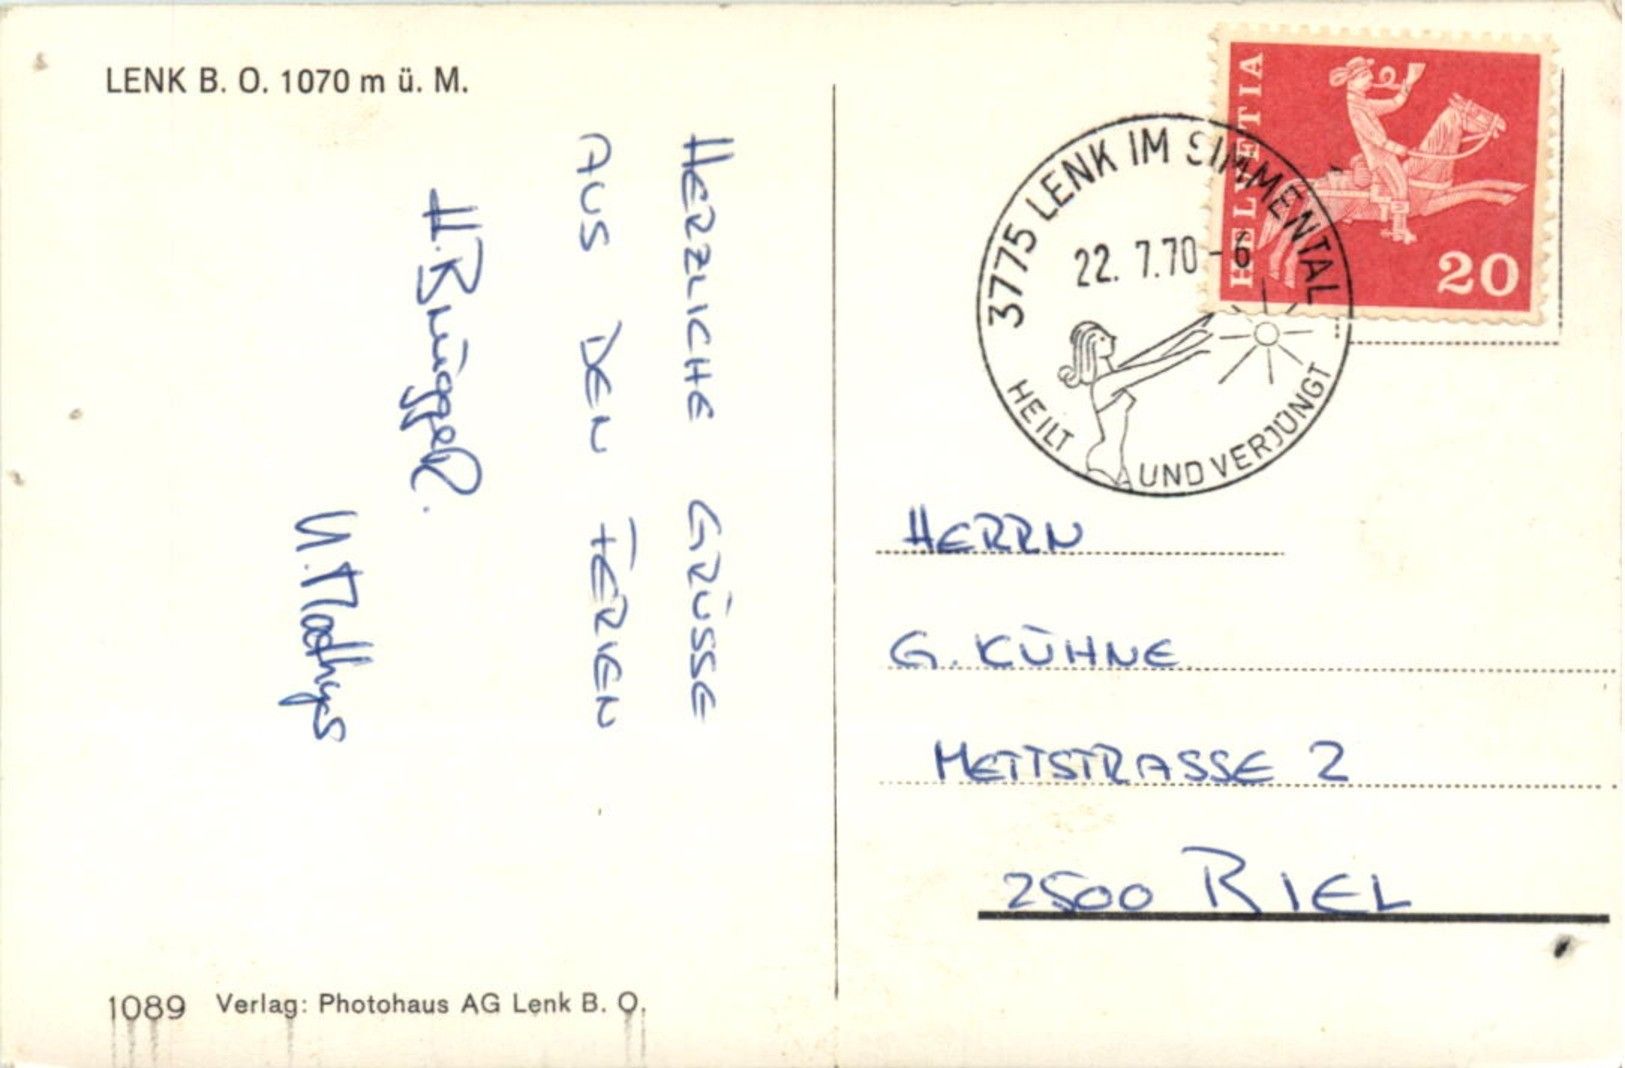 LENK B. O. 1070 m ü. M.
HERZLICHE GRÜSSE
AUS DEN FERIEN
H. Brüggel.
U. Mathys
1089 Verlag: Photohaus AG Lenk B. O.
HELVETIA
20
3775 LENK IM SIMMENTAL
22. 7.70-6
HEILT UND VERJÜNGT
HERRN
G. KÜHNE
METTSTRASSE 2
2500 BIEL